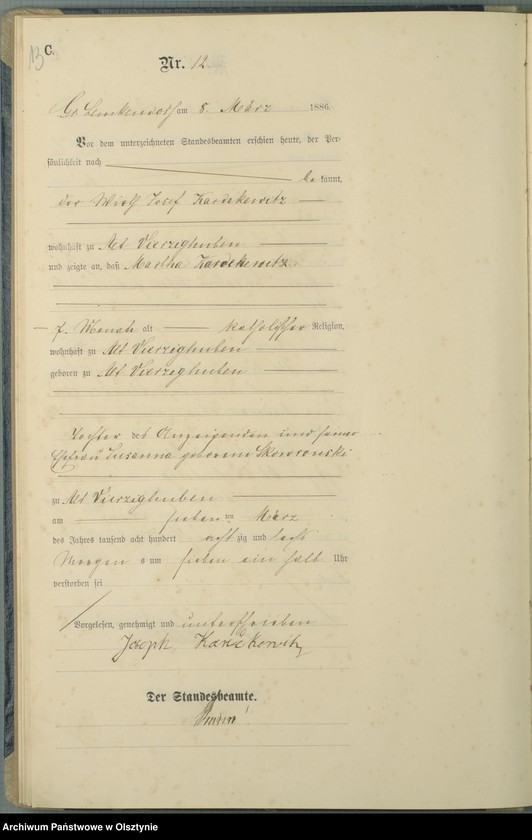 13
C.
Nr. 12
Gr. Lemkendorf am 8. März 1886.
Vor dem unterzeichneten Standesbeamten erschien heute, der Per-
sönlichkeit nach
be kannt,
der Wirth Josef Karduckewitz
wohnhaft zu Alt Vierzighuben
und zeigte an, daß Martha
7. Monate alt katholischer Religion,
wohnhaft zu Alt Vierzighuben
geboren zu Alt Vierzighuben
Tochter des Anzeigenden und seiner
Ehefrau Susanna geborene Skowronski
zu Alt Vierzighuben
am sieben ten März
des Jahres tausend acht hundert acht zig und sechs
Morgens um sieben ein halb Uhr
verstorben sei
Vorgelesen, genehmigt und unterschrieben
Joseph
Der Standesbeamte.
Archiwum Państwowe w Olsztynie